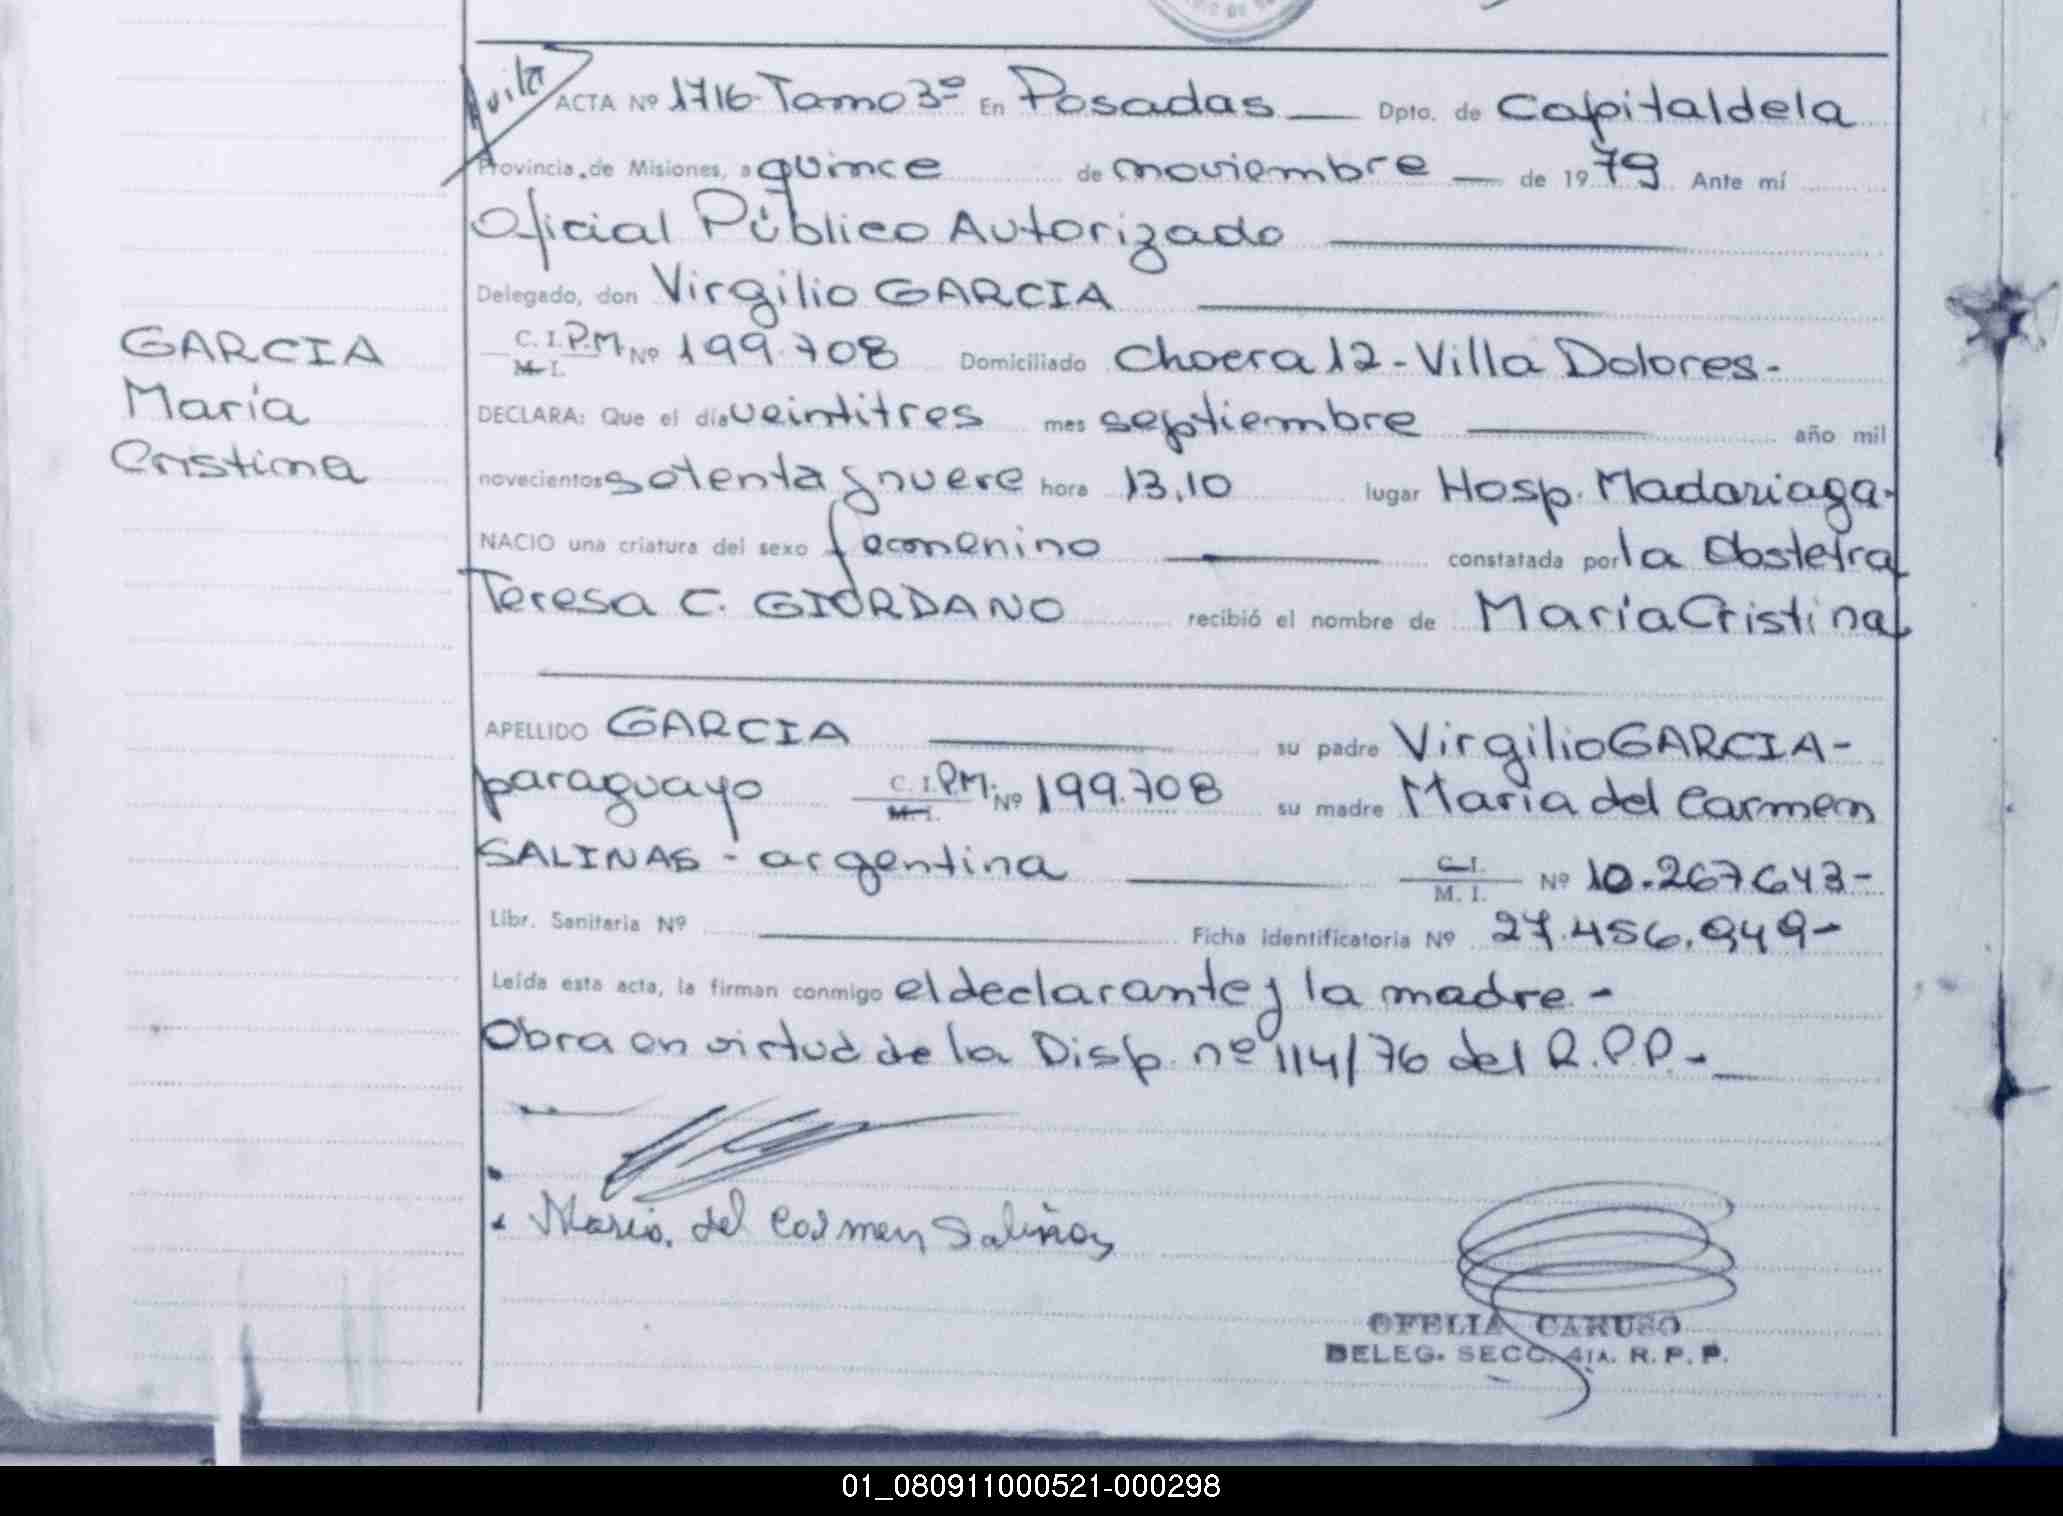 ACTA Nº 1716 Tomo 3º En Posadas Dpto. de Capital de la
Provincia de Misiones, a quince de noviembre de 1979 Ante mí
Oficial Público Autorizado
Delegado, don Virgilio GARCIA
C. I. P.M. M. I. Nº 199.708 Domiciliado Chacra 12 - Villa Dolores -
GARCIA
María
Cristina
DECLARA: Que el día veintitres mes septiembre año mil
novecientos setenta y nueve hora 13,10 lugar Hosp. Madariaga -
NACIO una criatura del sexo femenino constatada por la Obstetra
Teresa C. GIORDANO recibió el nombre de María Cristina
APELLIDO GARCIA su padre Virgilio GARCIA -
paraguayo C. I. P.M. M. I. Nº 199.708 su madre María del Carmen
SALINAS - argentina C. I. M. I. Nº 10.267.643 -
Libr. Sanitaria Nº Ficha identificatoria Nº 27.456.949 -
Leída esta acta, la firman conmigo el declarante y la madre -
Obra en virtud de la Disp. nº 114/76 del R.P.P. -
Maria del Carmen Salinas
OFELIA CARUSO
DELEG. SECC. 4TA. R. P. P.
01_080911000521-000298